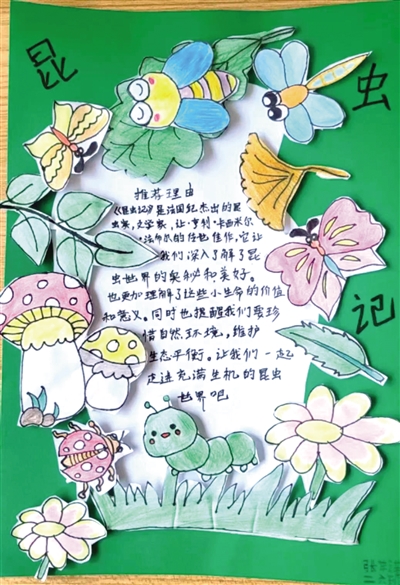 昆
虫
记
推荐理由
《昆虫记》是法国纪杰出的昆
虫家,文学家,让·亨利·卡西米尔
·法布尔的传世佳作,它让
我们深入了解了昆
虫世界的奥秘和美好。
也更加理解了这些小生命的价值
和意义。同时也提醒我们要珍
惜自然环境,维护
生态平衡,让我们一起
走进充满生机的昆虫
世界吧